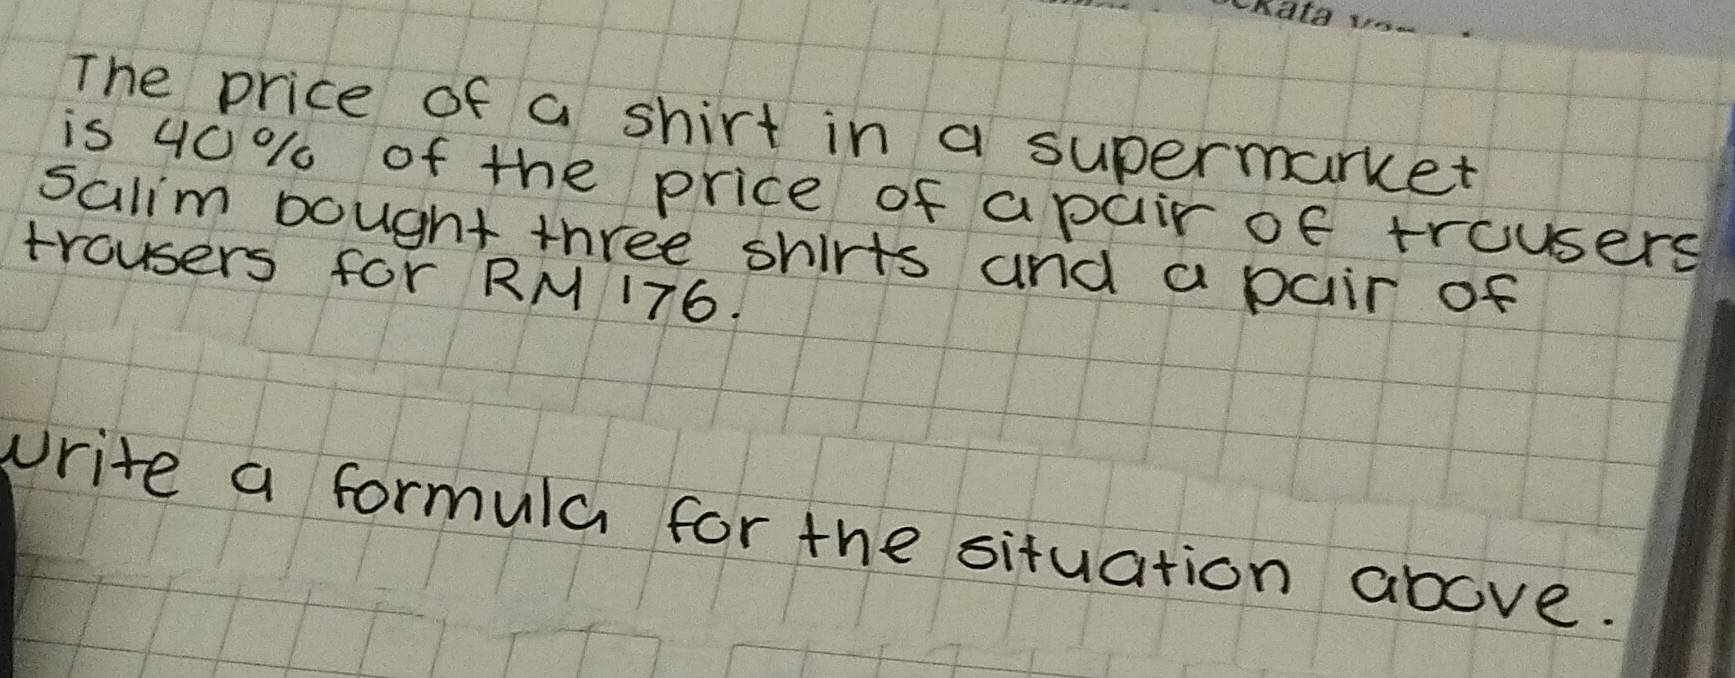 The price of a shirt in a supermarket
is 40% of the price of a pair of trousers
Salim bought three shirts and a pair of
trousers for RM 176.
write a formula for the situation above.